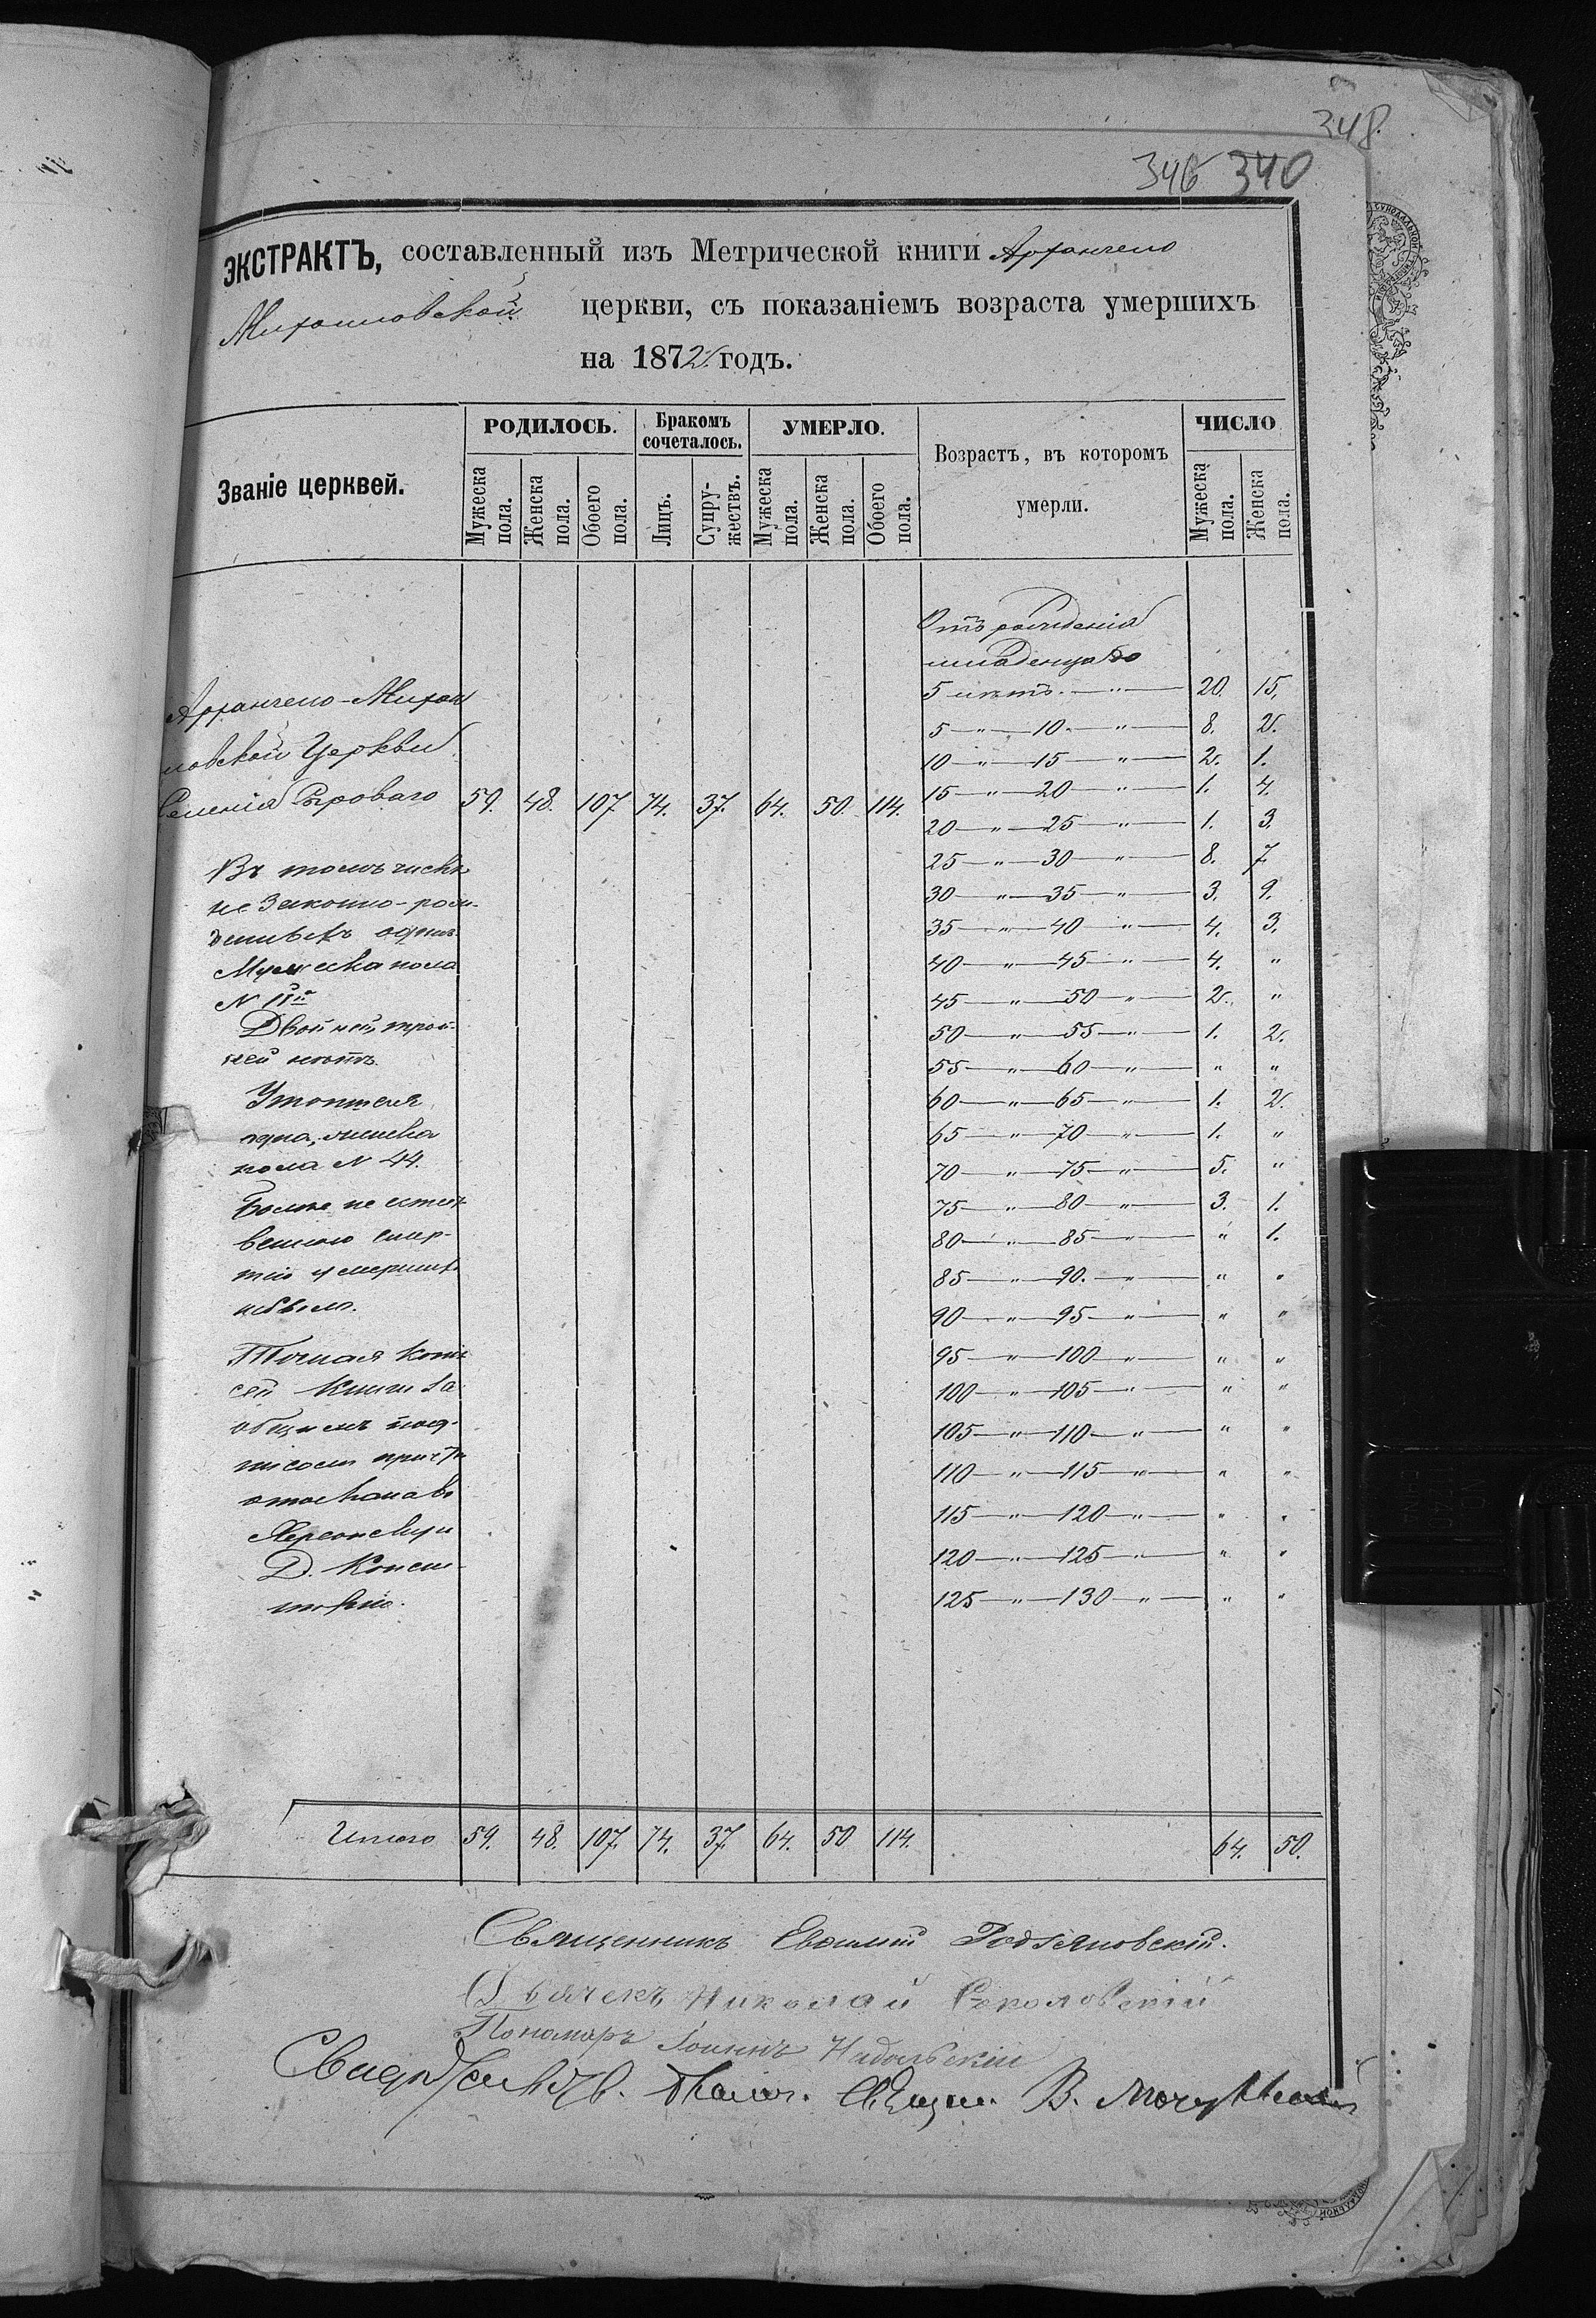 348.
346 340
ЭКСТРАКТЪ, составленный изъ Метрической книги Архангело
Михайловской церкви, съ показаніемъ возраста умершихъ
на 1872. годъ.
Званіе церквей.
РОДИЛОСЬ.
Бракомъ сочеталось.
УМЕРЛО.
Возрастъ, въ которомъ умерли.
ЧИСЛО
Мужеска пола.
Женска пола.
Обоего пола.
Лицъ.
Супружествъ.
Мужеска пола.
Женска пола.
Обоего пола.
Мужеска пола.
Женска пола.
Отъ рожденія
младенца до
5 лѣтъ. — " — 20. 15.
5 — " — 10. — " — 8. 2.
10 — " — 15 — " — 2. 1.
15 — " — 20 — " — 1. 4.
20 — " — 25 — " — 1. 3.
25 — " — 30 — " — 8. 7
30 — " — 35 — " — 3. 9.
35 — " — 40 — " — 4. 3.
40 — " — 45 — " — 4. "
45 — " — 50 — " — 2. "
50 — " — 55 — " — 1. 2.
55 — " — 60 — " — " "
60 — " — 65 — " — 1. 2.
65 — " — 70 — " — 1. "
70 — " — 75 — " — 5. "
75 — " — 80 — " — 3. 1.
80 — " — 85 — " — " 1.
85 — " — 90. — " — " "
90 — " — 95 — " — " "
95 — " — 100 — " — " "
100 — " — 105 — " — " "
105 — " — 110 — " — " "
110 — " — 115 — " — " "
115 — " — 120 — " — " "
120 — " — 125 — " — " "
125 — " — 130 — " — " "
Архангело-Михай
ловской Церкви
Селенія Сырового 59. 48. 107. 74. 37. 64. 50. 114.
Въ томъ числѣ
не законно-рож-
денныхъ одинъ
Мужеска пола
N 11й
Двойней, трой-
ней нѣтъ.
Утопшая
одна, женска
пола N 44.
Болѣе не естест
венною смер-
тію умершихъ
небыло.
Точная копія
сей книги за
общимъ под-
писомъ причта
отослана въ
Херсонскую
Д. Консис-
торію.
Итого 59. 48. 107. 74. 37. 64. 50 114. 64. 50.
Священникъ Евфимій
Дьячекъ Николай Соколовскій
Пономарь Іоаннъ Надольскій